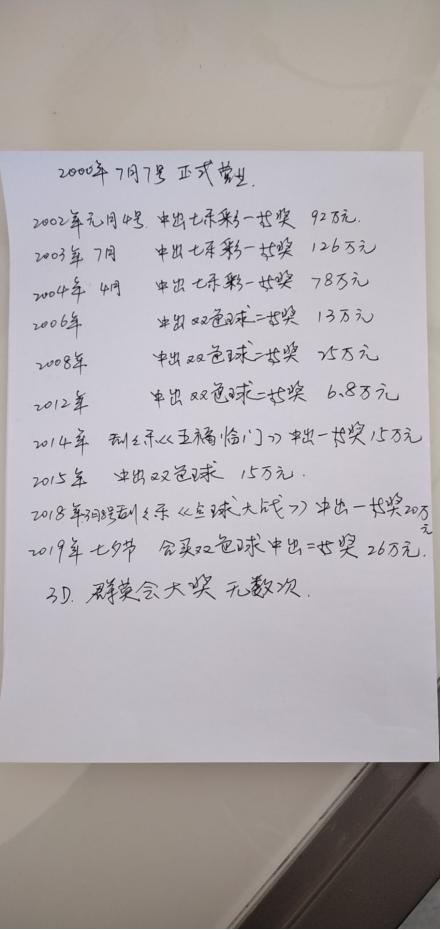 2000年7月7号 正式营业.
2002年元月4号. 中出七乐彩一等奖 92万元.
2003年7月 中出七乐彩一等奖 126万元
2004年4月 中出七乐彩一等奖 78万元
2006年 中出双色球二等奖 13万元
2008年 中出双色球二等奖 25万元
2012年 中出双色球二等奖 6.8万元
2014年 刮刮乐《五福临门》中出一等奖15万元
2015年 中出双色球 15万元.
2018年3月8号刮刮乐《点球大战》中出一等奖20万元
2019年七夕节 合买双色球中出二等奖 26万元.
3D. 群英会大奖 无数次.